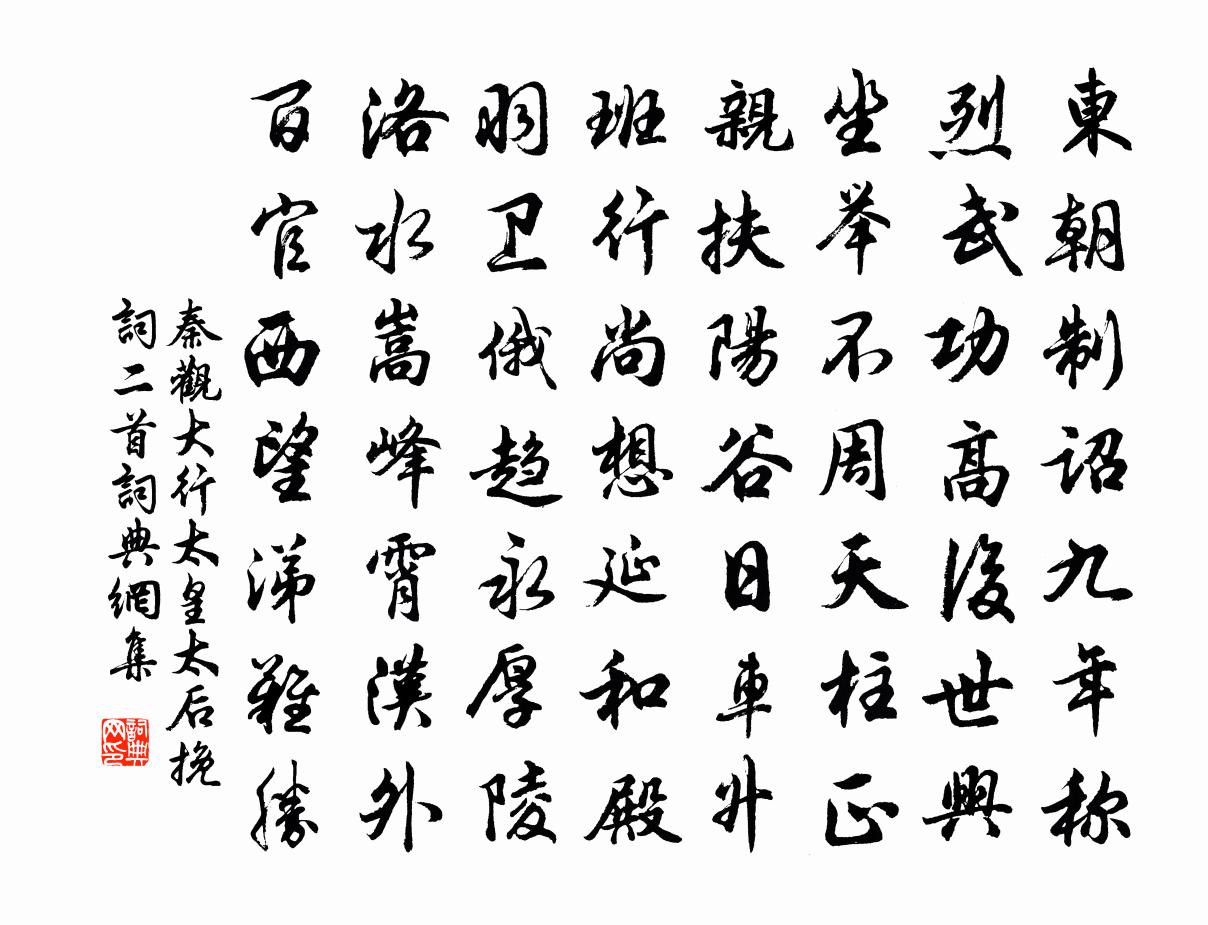 東朝制詔九年称
烈武功高後世興
坐举不周天柱正
親扶陽谷日車升
班行尚想延和殿
羽卫俄趋永厚陵
洛水嵩峰霄漢外
百官西望涕難勝
秦觀大行太皇太后挽
詞二首詞典網集
詞典
网印